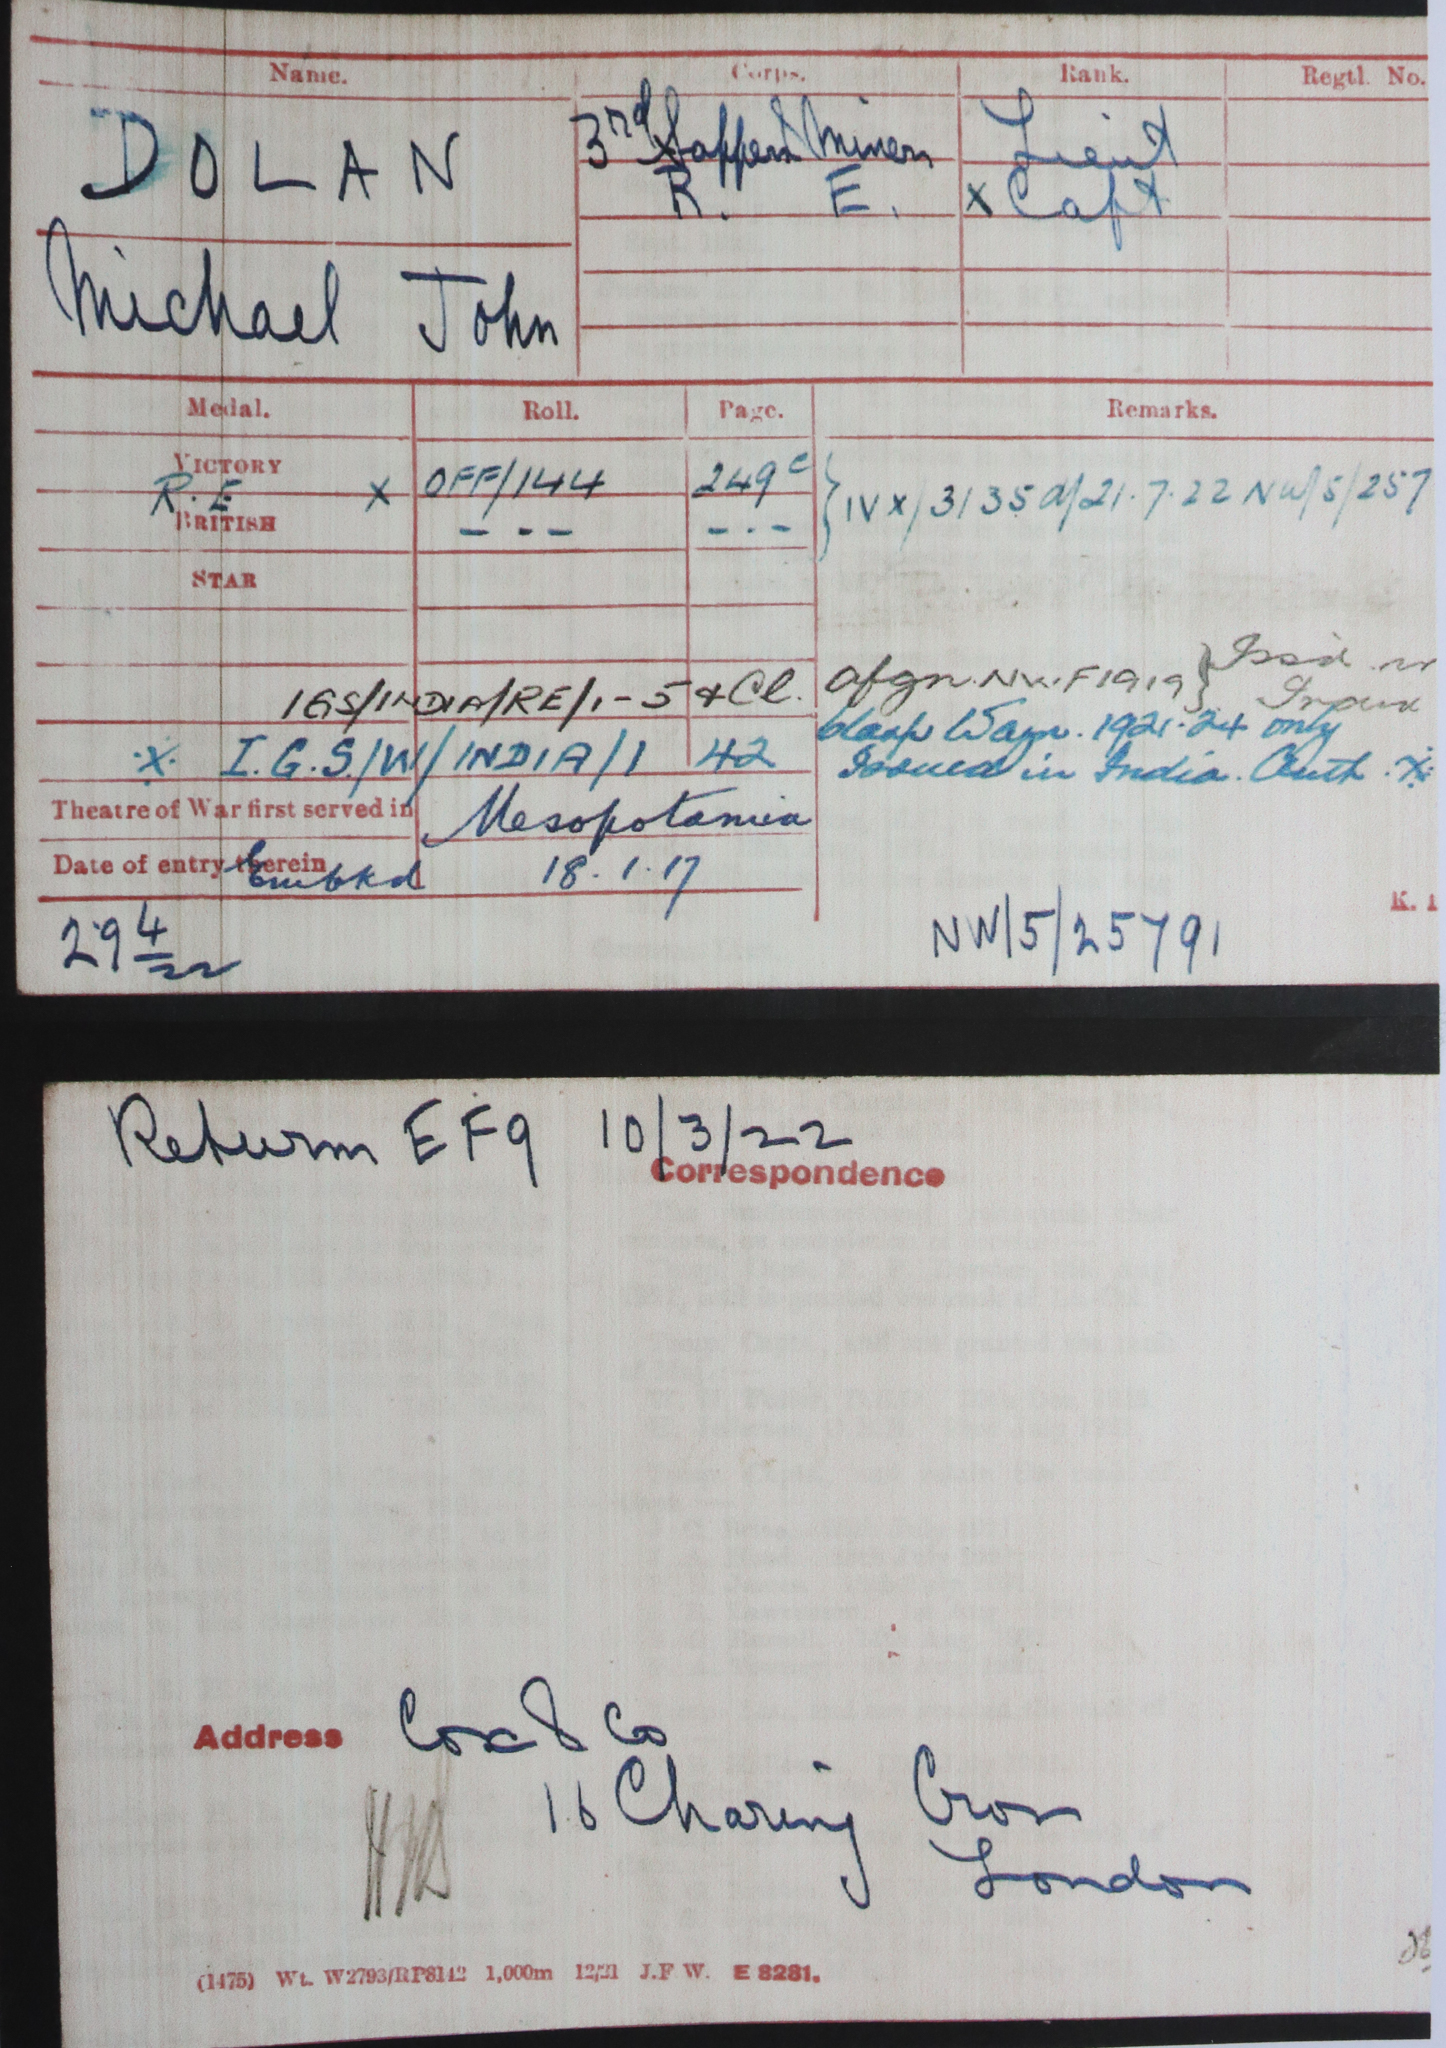 Name. Corps. Rank. Regtl. No.
DOLAN 3rd Sappers & Miners Lieut
R. E. x Capt
Michael John
Medal. Roll. Page. Remarks.
VICTORY
R.E x OFF/144 249c } IVX/3135 d/21.7.22 NW/5/257
BRITISH – - – – - –
STAR
IGS/INDIA/RE/1-5 & Cl. Afgn. N.W.F 1919 } Issd in India
x I.G.S./W/INDIA/1 42 Clasp Wazn. 1921-24 only
Issued in India. Auth. x
Theatre of War first served in Mesopotamia
Date of entry therein Embkd 18.1.17
K. 1
29 4/22 NW/5/25791
Return EF9 10/3/22
Correspondence
Address Cox & Co
16 Charing Cross
London
(1475) Wt. W2793/RP8142 1,000m 12/21 J.F.W. E 8281.